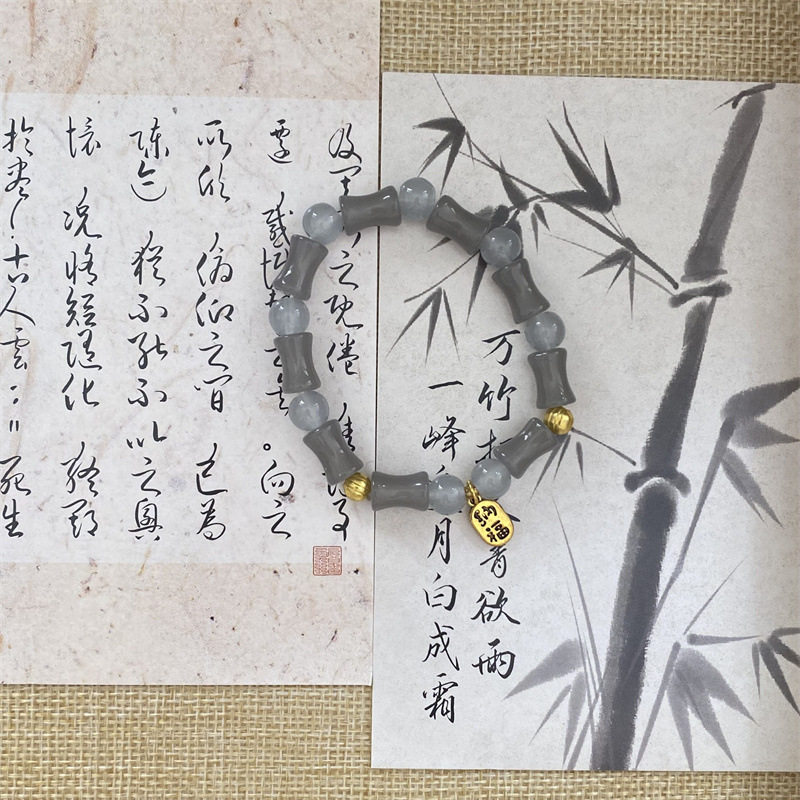 及其之既倦 情隨事
遷 感慨之矣。向之
所欣 俯仰之間 已為
陳迹 猶不能不以之興
懷 況脩短隨化 終期
於盡！古人雲："死生
万竹青欲雨
一峰月白成霜
納福